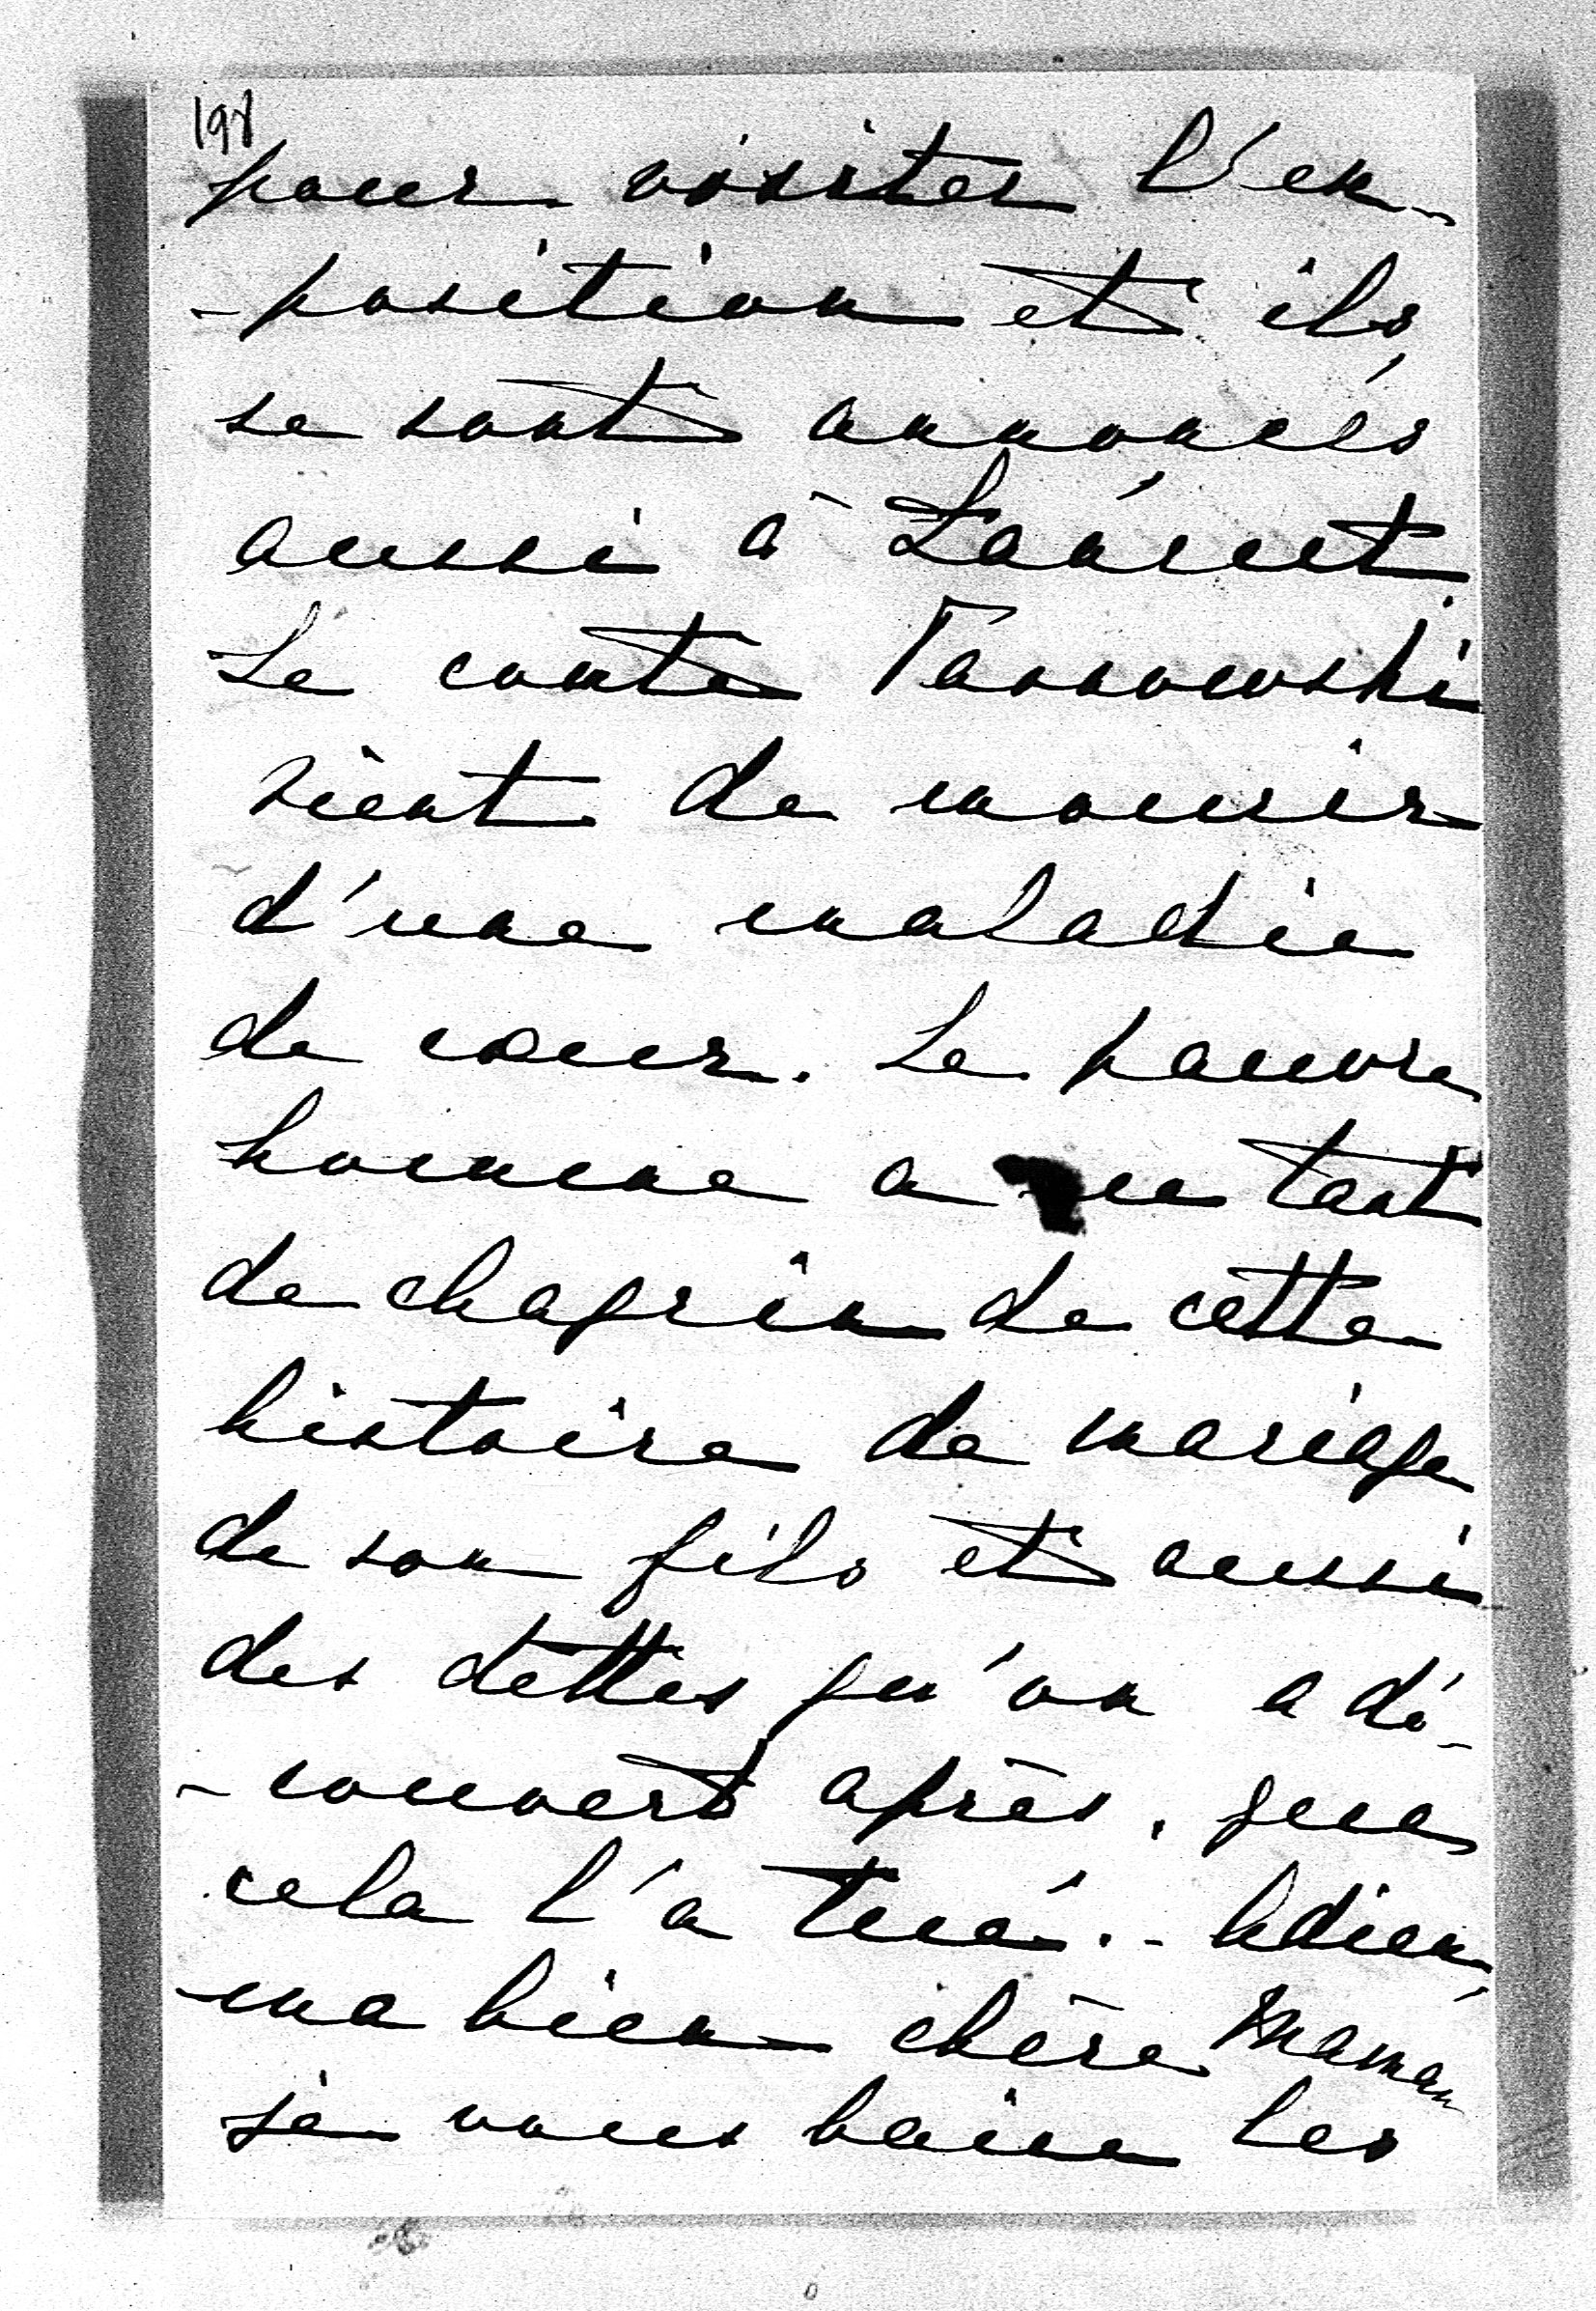 198
pour visiter l'ex-
-position et ils
se sont annoncés
aussi à Łańcut.
Le comte Tarnowski
vient de mourir
d'une maladie
de cœur. Le pauvre
homme a eu tant
de chagrin de cette
histoire de mariage
de son fils et aussi
des dettes qu'on a dé-
-couvert après, que
cela l'a tué. - Adieu,
ma bien chère Maman
je vous baise les